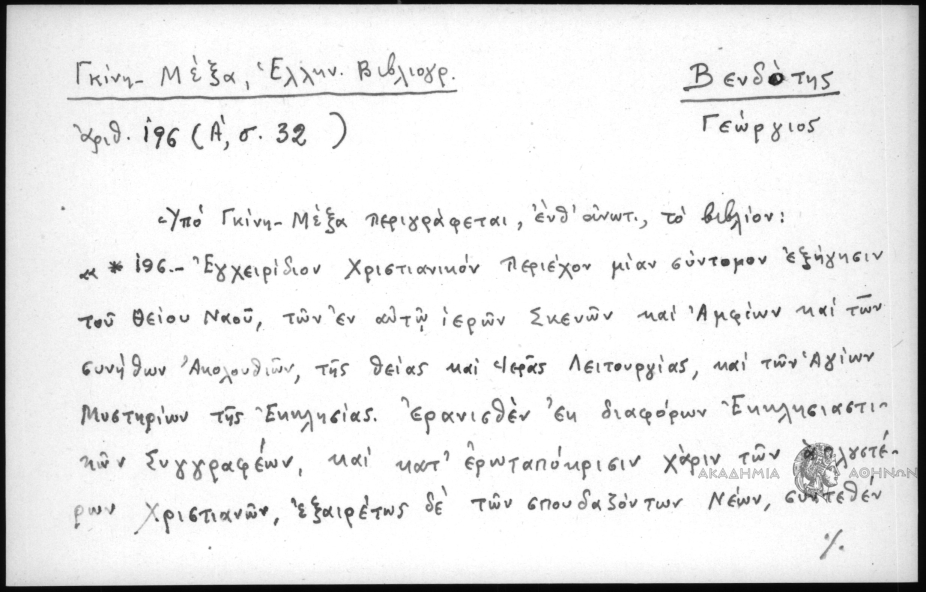 Γκίνη - Μέξα, Ἑλλην. Βιβλιογρ.
ἀριθ. 196 (Α', σ. 32)
Βενδότης
Γεώργιος
Ὑπό Γκίνη - Μέξα περιγράφεται, ἔνθ' ἀνωτ., τό βιβλίον:
«* 196.- Ἐγχειρίδιον Χριστιανικόν περιέχον μίαν σύντομον ἐξήγησιν
τοῦ θείου Ναοῦ, τῶν ἐν αὐτῷ ἱερῶν Σκευῶν καί Ἀμφίων καί τῶν
συνήθων Ἀκολουθιῶν, τῆς θείας καί Ἱερᾶς Λειτουργίας, καί τῶν Ἁγίων
Μυστηρίων τῆς Ἐκκλησίας. Ἐρανισθέν ἐκ διαφόρων Ἐκκλησιαστι-
κῶν Συγγραφέων, καί κατ' ἐρωταπόκρισιν χάριν τῶν ἁπλουστέ-
ρων Χριστιανῶν, ἐξαιρέτως δέ τῶν σπουδαζόντων Νέων, συντεθέν
./.
ΑΚΑΔΗΜΙΑ ΑΘΗΝΩΝ